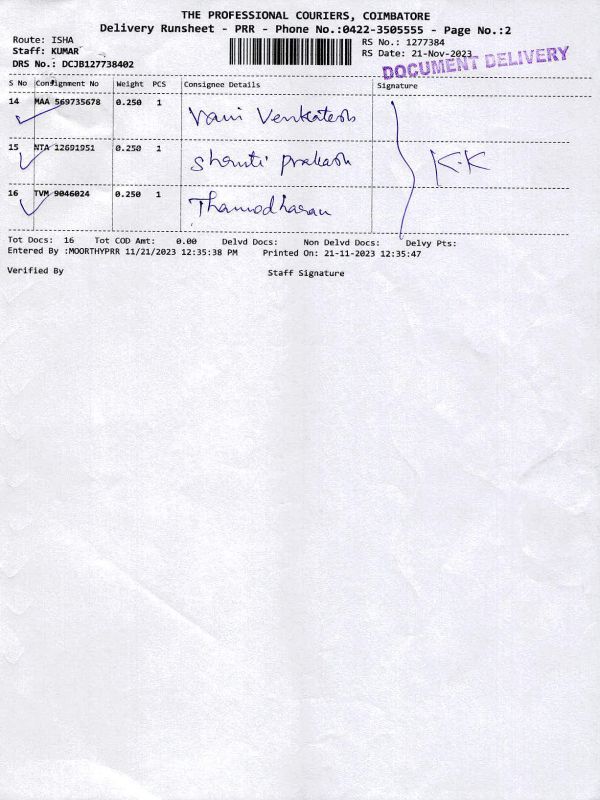 THE PROFESSIONAL COURIERS, COIMBATORE
Delivery Runsheet - PRR - Phone No.:0422-3505555 - Page No.:2
Route: ISHA
Staff: KUMAR
DRS No.: DCJB127738402
RS No.: 1277384
RS Date: 21-Nov-2023
DOCUMENT DELIVERY
S No Consignment No Weight PCS Consignee Details Signature
14 MAA 569735678 0.250 1 Vani Venkatesh
15 NTA 12691951 0.250 1 Shruti prakash K.K
16 TVM 9046024 0.250 1 Thamodharan
Tot Docs: 16 Tot COD Amt: 0.00 Delvd Docs: Non Delvd Docs: Delvy Pts:
Entered By :MOORTHYPRR 11/21/2023 12:35:38 PM Printed On: 21-11-2023 12:35:47
Verified By Staff Signature